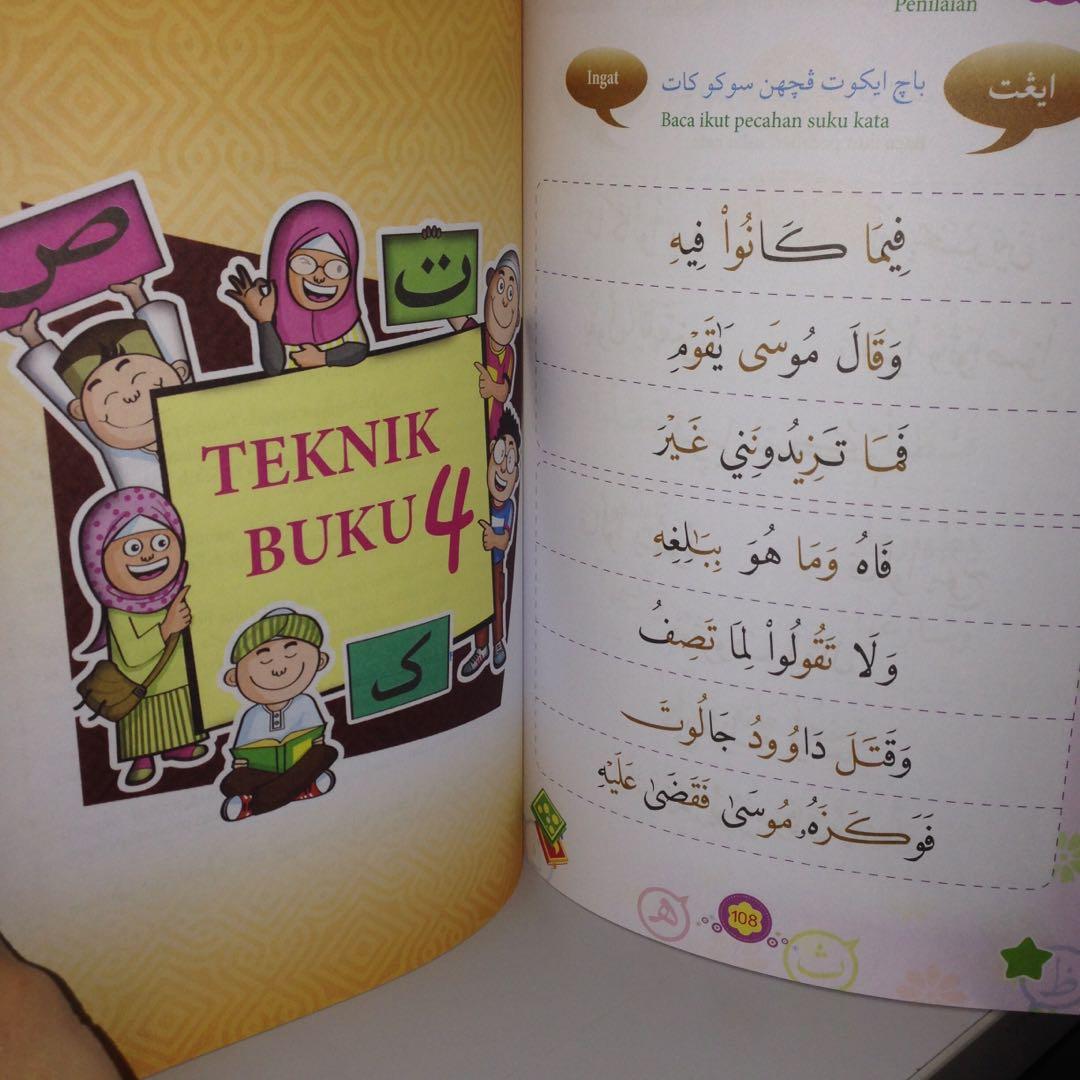 ص
ت
TEKNIK
BUKU 4
ک
Penilaian
Ingat
ايڠت
باچ ايکوت ڤچهن سوکو کات
Baca ikut pecahan suku kata
فِيمَا كَانُوا۟ فِيهِ
وَقَالَ مُوسَى يَٰقَوْمِ
فَمَا تَزِيدُونَنِي غَيْرَ
فَاهُ وَمَا هُوَ بِبَٰلِغِهِ
وَلَا تَقُولُوا۟ لِمَا تَصِفُ
وَقَتَلَ دَاوُودُ جَالُوتَ
فَوَكَزَهُۥ مُوسَىٰ فَقَضَىٰ عَلَيْهِ
ه
108
ث
ظ